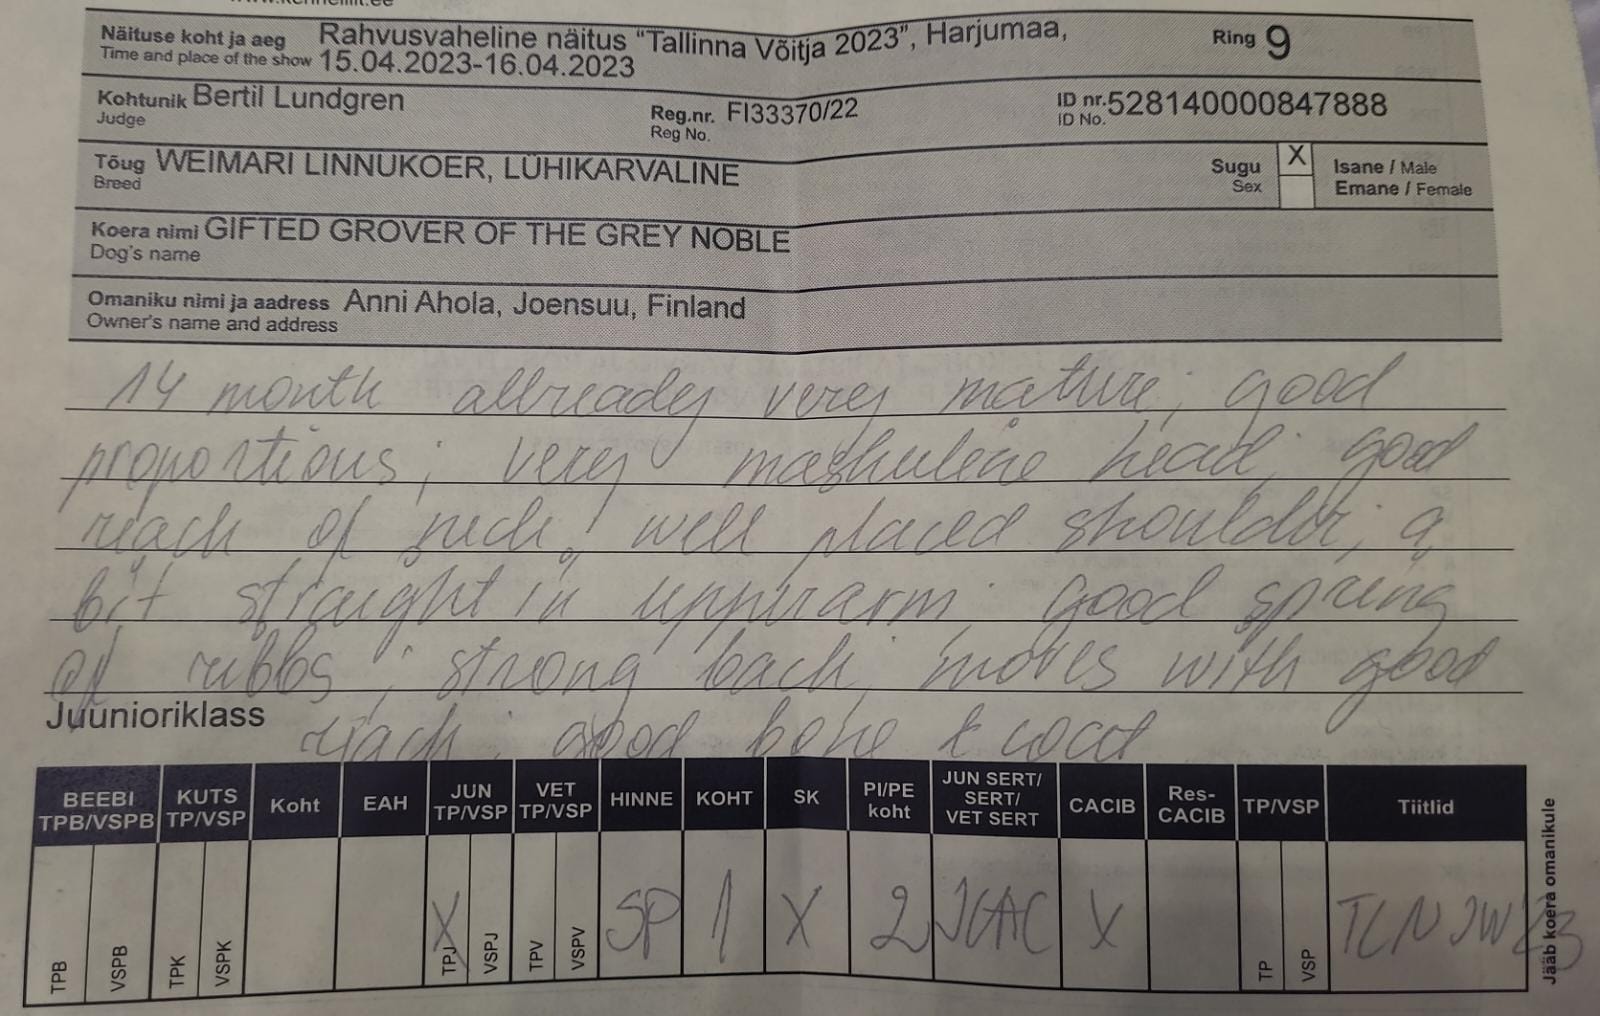 Näituse koht ja aeg Rahvusvaheline näitus "Tallinna Võitja 2023", Harjumaa, Ring 9
Time and place of the show 15.04.2023-16.04.2023
Kohtunik Bertil Lundgren Reg.nr. FI33370/22 ID nr. 528140000847888
Judge Reg No. ID No.
Tõug WEIMARI LINNUKOER, LÜHIKARVALINE Sugu X Isane / Male
Breed Sex Emane / Female
Koera nimi GIFTED GROVER OF THE GREY NOBLE
Dog's name
Omaniku nimi ja aadress Anni Ahola, Joensuu, Finland
Owner's name and address
14 month allready very mature; good
proportions; very mashulene head; good
reach of neck; well placed shoulder; a
bit straight in upperarm; good spring
of ribbs; strong back; moves with good
Juunioriklass reach; good bone & coat
BEEBI TPB/VSPB KUTS TP/VSP Koht EAH JUN TP/VSP VET TP/VSP HINNE KOHT SK PI/PE koht JUN SERT/ SERT/ VET SERT CACIB Res-CACIB TP/VSP Tiitlid
TPB VSPB TPK VSPK X TPJ VSPJ TPV VSPV SP 1 X 2 JCAC X TP VSP TLN JW 23
Jääb koera omanikule